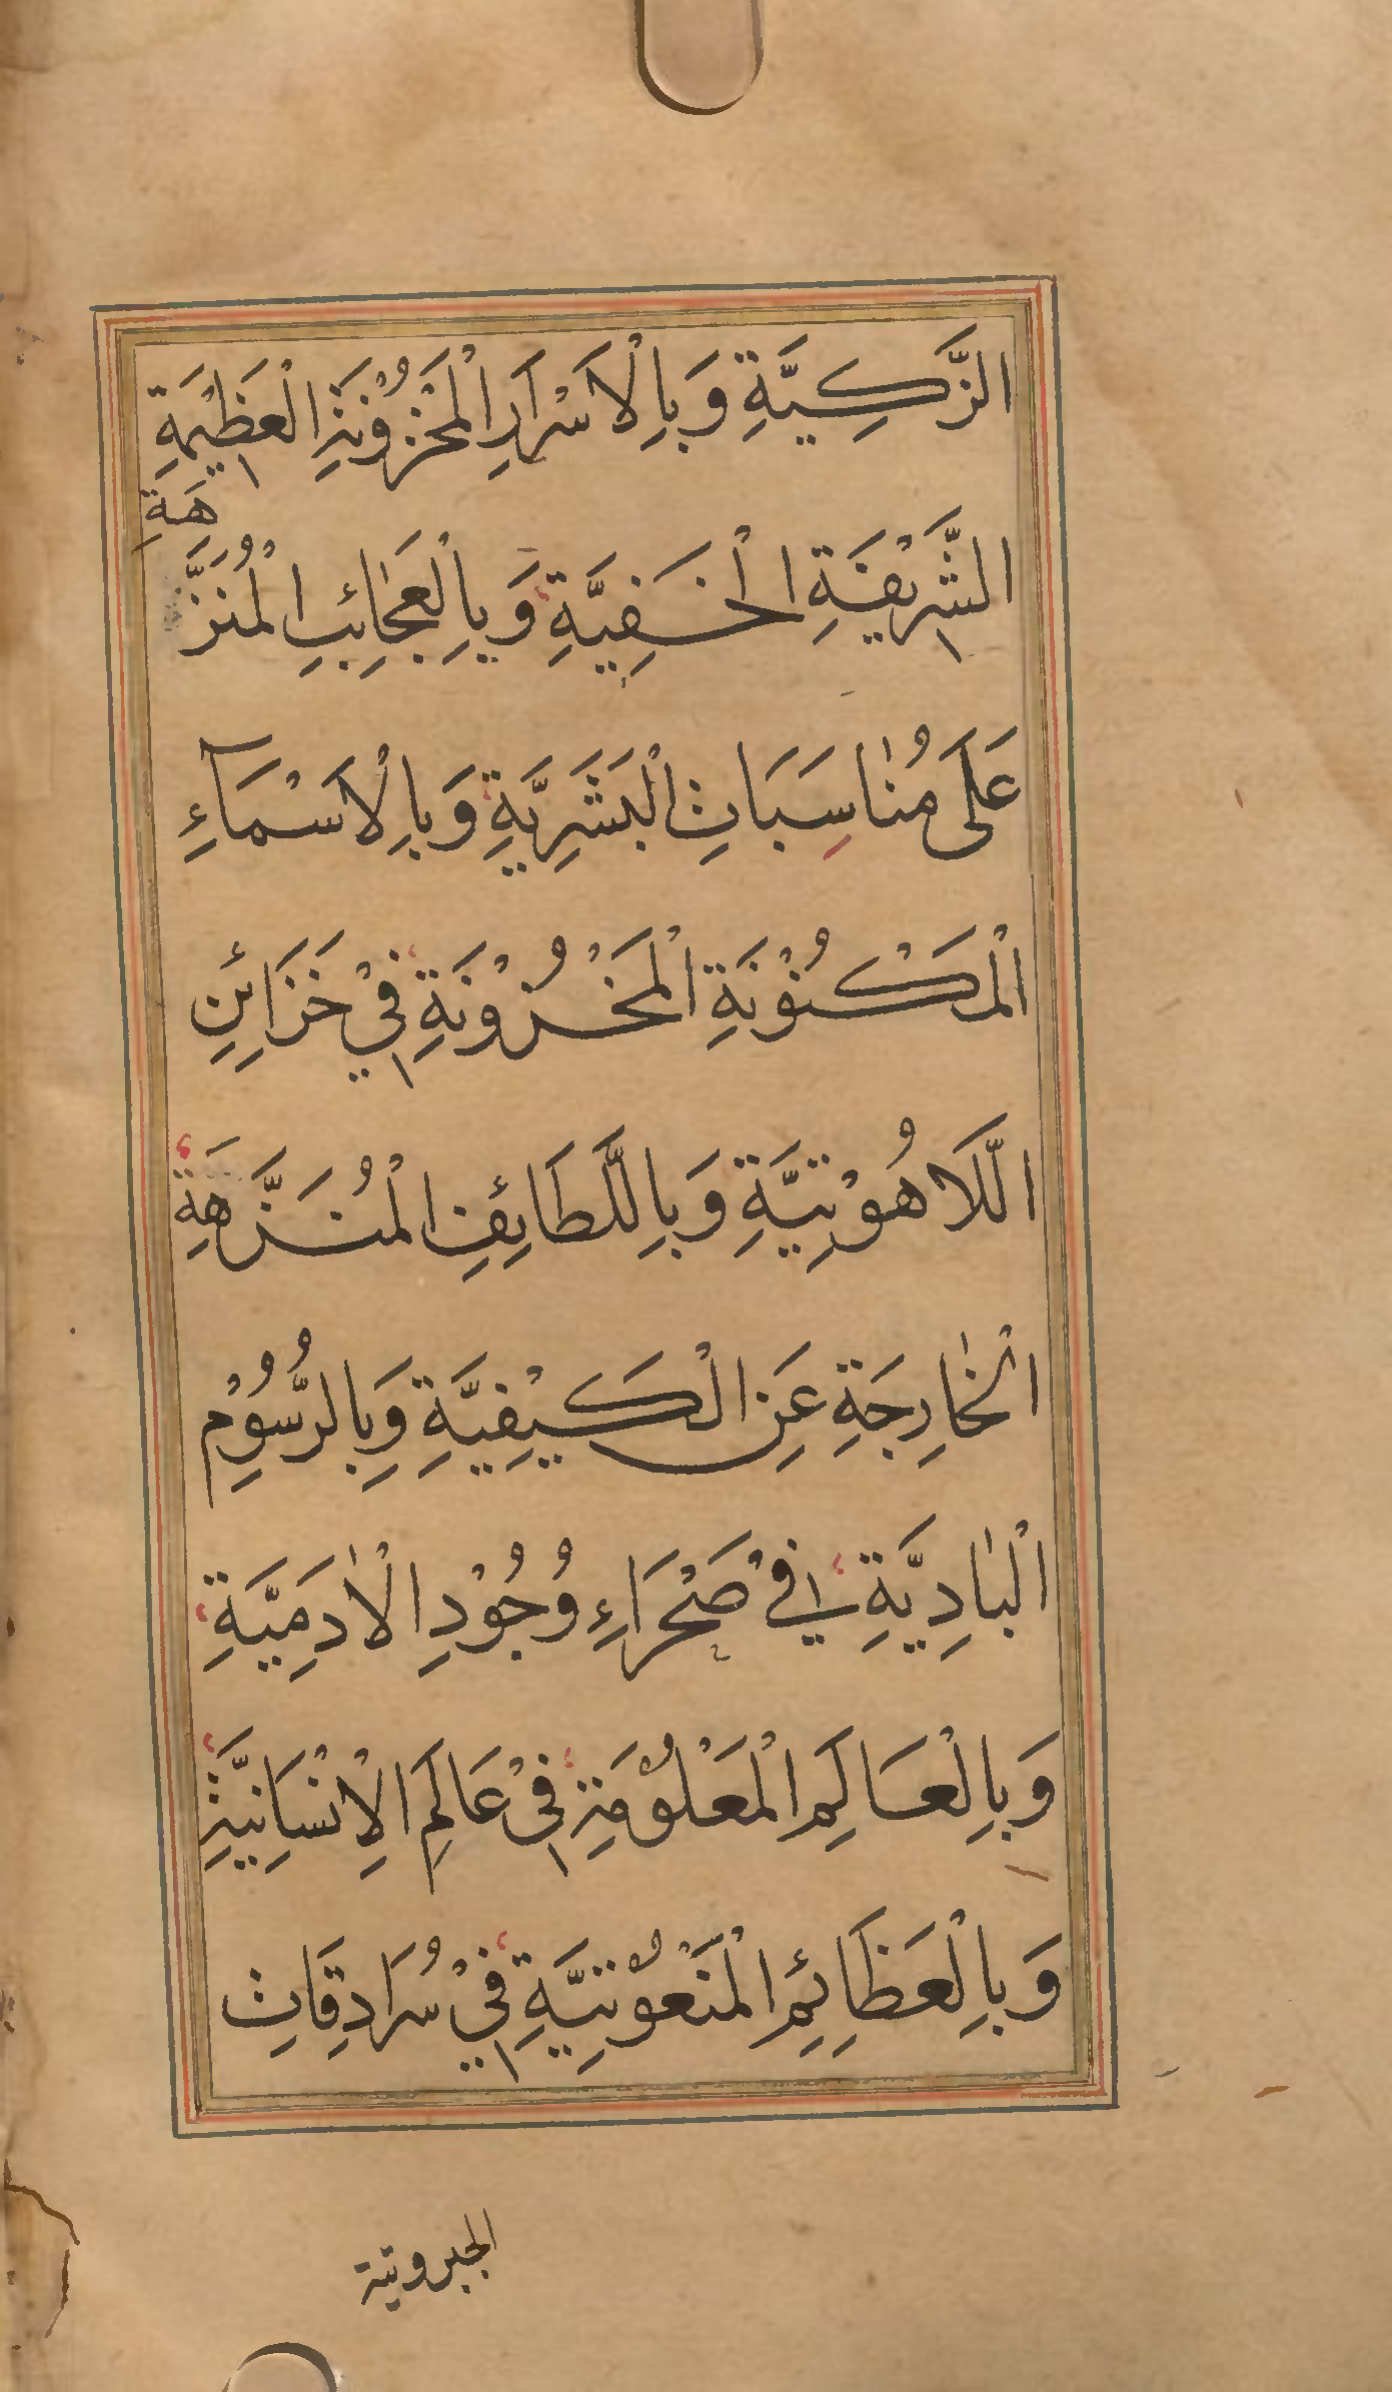 الزَّكِيَّةِ وَبِالْاَسْرَارِ الْمَخْزُوْنَةِ الْعَظِيْمَةِ
الشَّرِيْفَةِ الْخَفِيَّةِ وَبِالْعَجَائِبِ الْمُنَزَّهَةِ
عَلَى مُنَاسِبَاتِ الْبَشَرِيَّةِ وَبِالْاَسْمَآءِ
الْمَكْنُوْنَةِ الْمَخْزُوْنَةِ فِيْ خَزَائِنِ
اللَّاهُوْتِيَّةِ وَبِاللَّطَائِفِ الْمُنَزَّهَةِ
الْخَارِجَةِ عَنِ الْكَيْفِيَّةِ وَبِالرُّسُوْمِ
الْبَادِيَّةِ فِيْ صَحْرَاءِ وُجُوْدِ الْاٰدَمِيَّةِ
وَبِالْعَالَمِ الْمَعْلُوْمَةِ فِيْ عَالَمِ الْاِنْسَانِيَّةِ
وَبِالْعَظَائِمِ الْمَنْعُوْتِيَّةِ فِيْ سُرَادِقَاتِ
الجبروتية